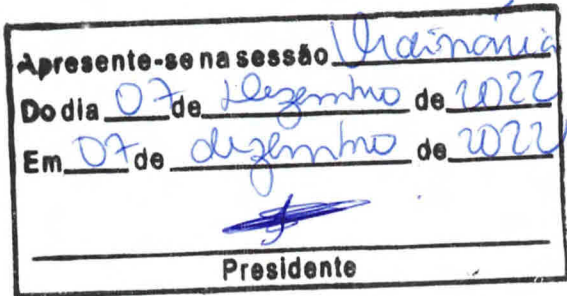 Apresente-se na sessão Ordinária
Do dia 07 de Dezembro de 2022
Em 07 de dezembro de 2022
Presidente